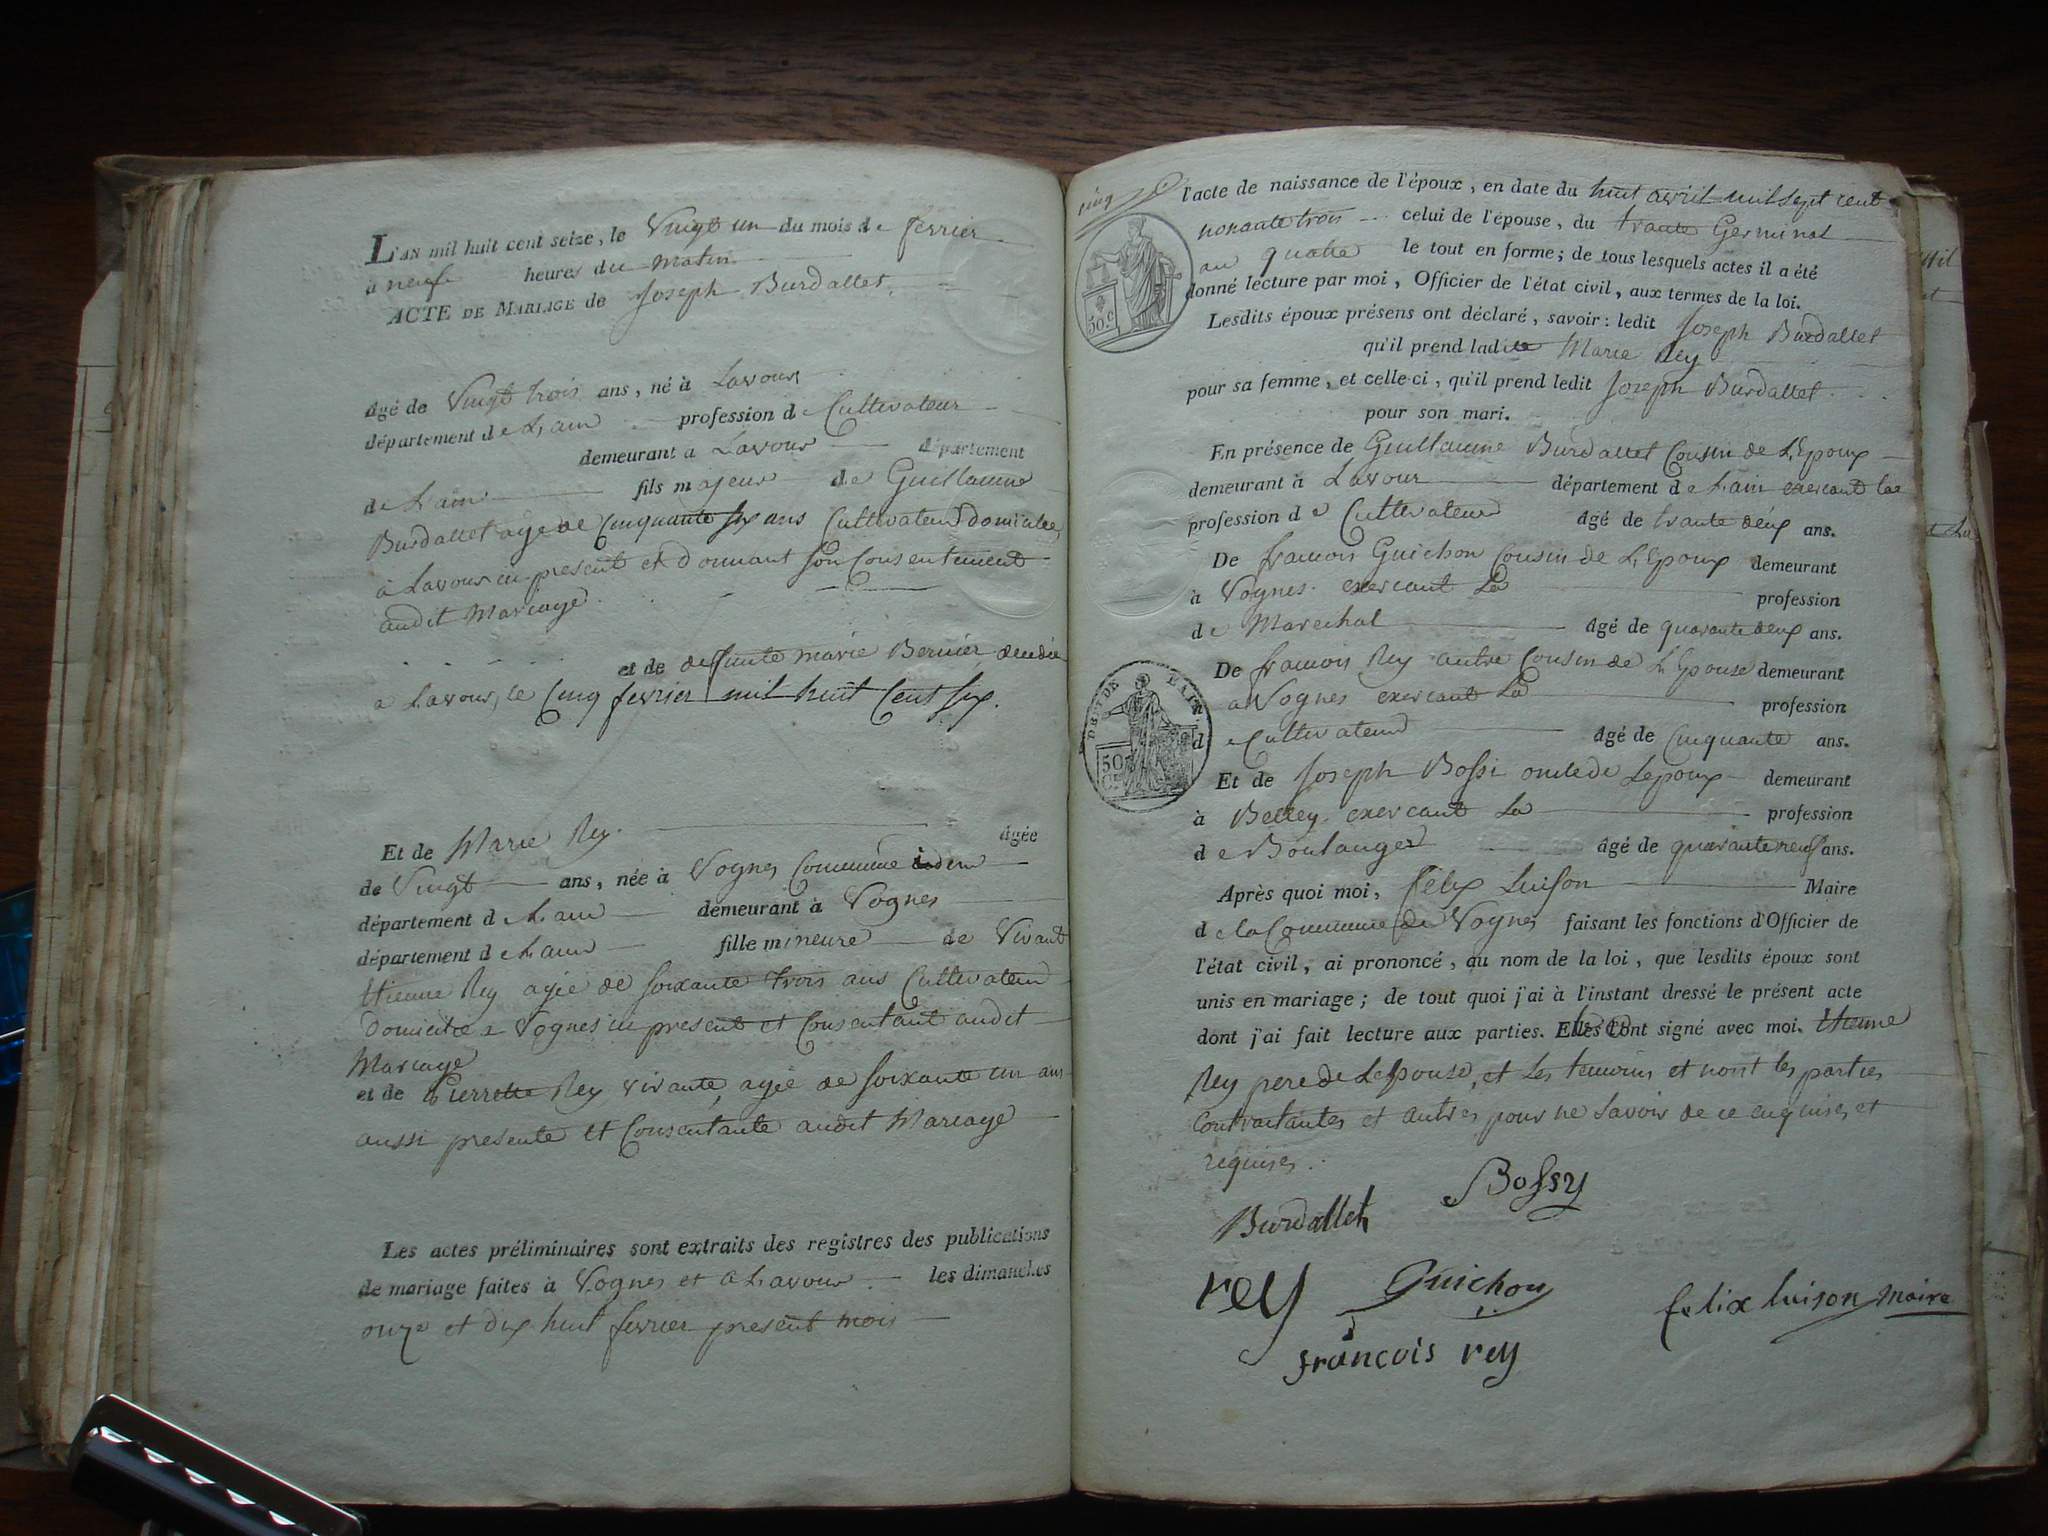 L'AN mil huit cent seize, le Vingt un du mois de fevrier
a neufe heures du Matin
ACTE DE MARIAGE de Joseph Burdallet
âgé de Vingt trois ans, né à Lavour
département de L'ain profession de Cultivateur
demeurant à Lavour département
de L'ain fils majeur de Guillaume
Burdallet agé de Cinquante six ans Cultivateur domicilee
à Lavour ici present et donnant son Consentement
audit Mariage
et de defunte marie Bernier decedée
a Lavour, le Cinq fevrier mil huit Cent six.
Et de Marie Rey âgée
de Vingt ans, née à Vognes Commune
département de L'ain demeurant à Vognes
département de L'ain fille mineure de Vivant
Etienne Rey agée de soixante trois ans Cultivateur
domicilié a Vognes ici present et Consentant audit
Mariage
et de Pierrette Rey vivante, agée de soixante un ans
aussi presente et Consentante audit Mariage
Les actes préliminaires sont extraits des registres des publications
de mariage faites à Vognes et a Lavour les dimanches
onze et dix huit fevrier present mois
l'acte de naissance de l'époux, en date du huit avril mil sept cent
nonante trois celui de l'épouse, du trante Germinal
an quatre le tout en forme; de tous lesquels actes il a été
donné lecture par moi, Officier de l'état civil, aux termes de la loi.
Lesdits époux présens ont déclaré, savoir: ledit Joseph Burdallet
qu'il prend ladite Marie Rey
pour sa femme, et celle-ci, qu'il prend ledit Joseph Burdallet
pour son mari.
En présence de Guillaume Burdallet Cousin de L'Epoux
demeurant à Lavour département de L'ain exercant la
profession de Cultivateur âgé de trante deux ans.
De francois Guichon Cousin de L'Epoux demeurant
à Vognes exercant La profession
de Marechal âgé de quarante deux ans.
De francois Rey autre Cousin de L'Epouse demeurant
a Vognes exercant La profession
de Cultivateur âgé de Cinquante ans.
Et de Joseph Bossi oncle de Lepoux demeurant
à Belley exercant La profession
de Boulanger âgé de quarante neuf ans.
Après quoi moi, félix Luison Maire
de la Commune de Vognes faisant les fonctions d'Officier de
l'état civil, ai prononcé, au nom de la loi, que lesdits époux sont
unis en mariage; de tout quoi j'ai à l'instant dressé le présent acte
dont j'ai fait lecture aux parties. Elles ont signé avec moi. Etienne
Rey pere de Lepouse, et Les temoins et nont les parties
Contractantes et autres pour ne savoir de ce enquises et
requises.
Bossy
Burdallet
rey Guichon
felix luison maire
francois rey
cinq
30.c
DEPT DE L'AIN.
50
C.